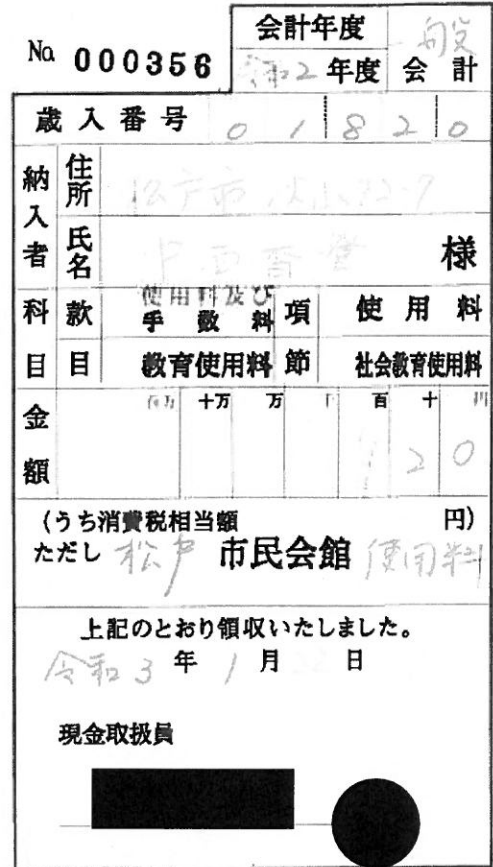 No 000356
会計年度
令和2年度
一般会計
歳入番号 01820
納入者
住所 松戸市
氏名 様
科目
款 使用料及び手数料 項 使用料
目 教育使用料 節 社会教育使用料
金額
百万 十万 万 千 百 十 円
720
(うち消費税相当額 円)
ただし 松戸 市民会館 使用料
上記のとおり領収いたしました。
令和3年1月 日
現金取扱員